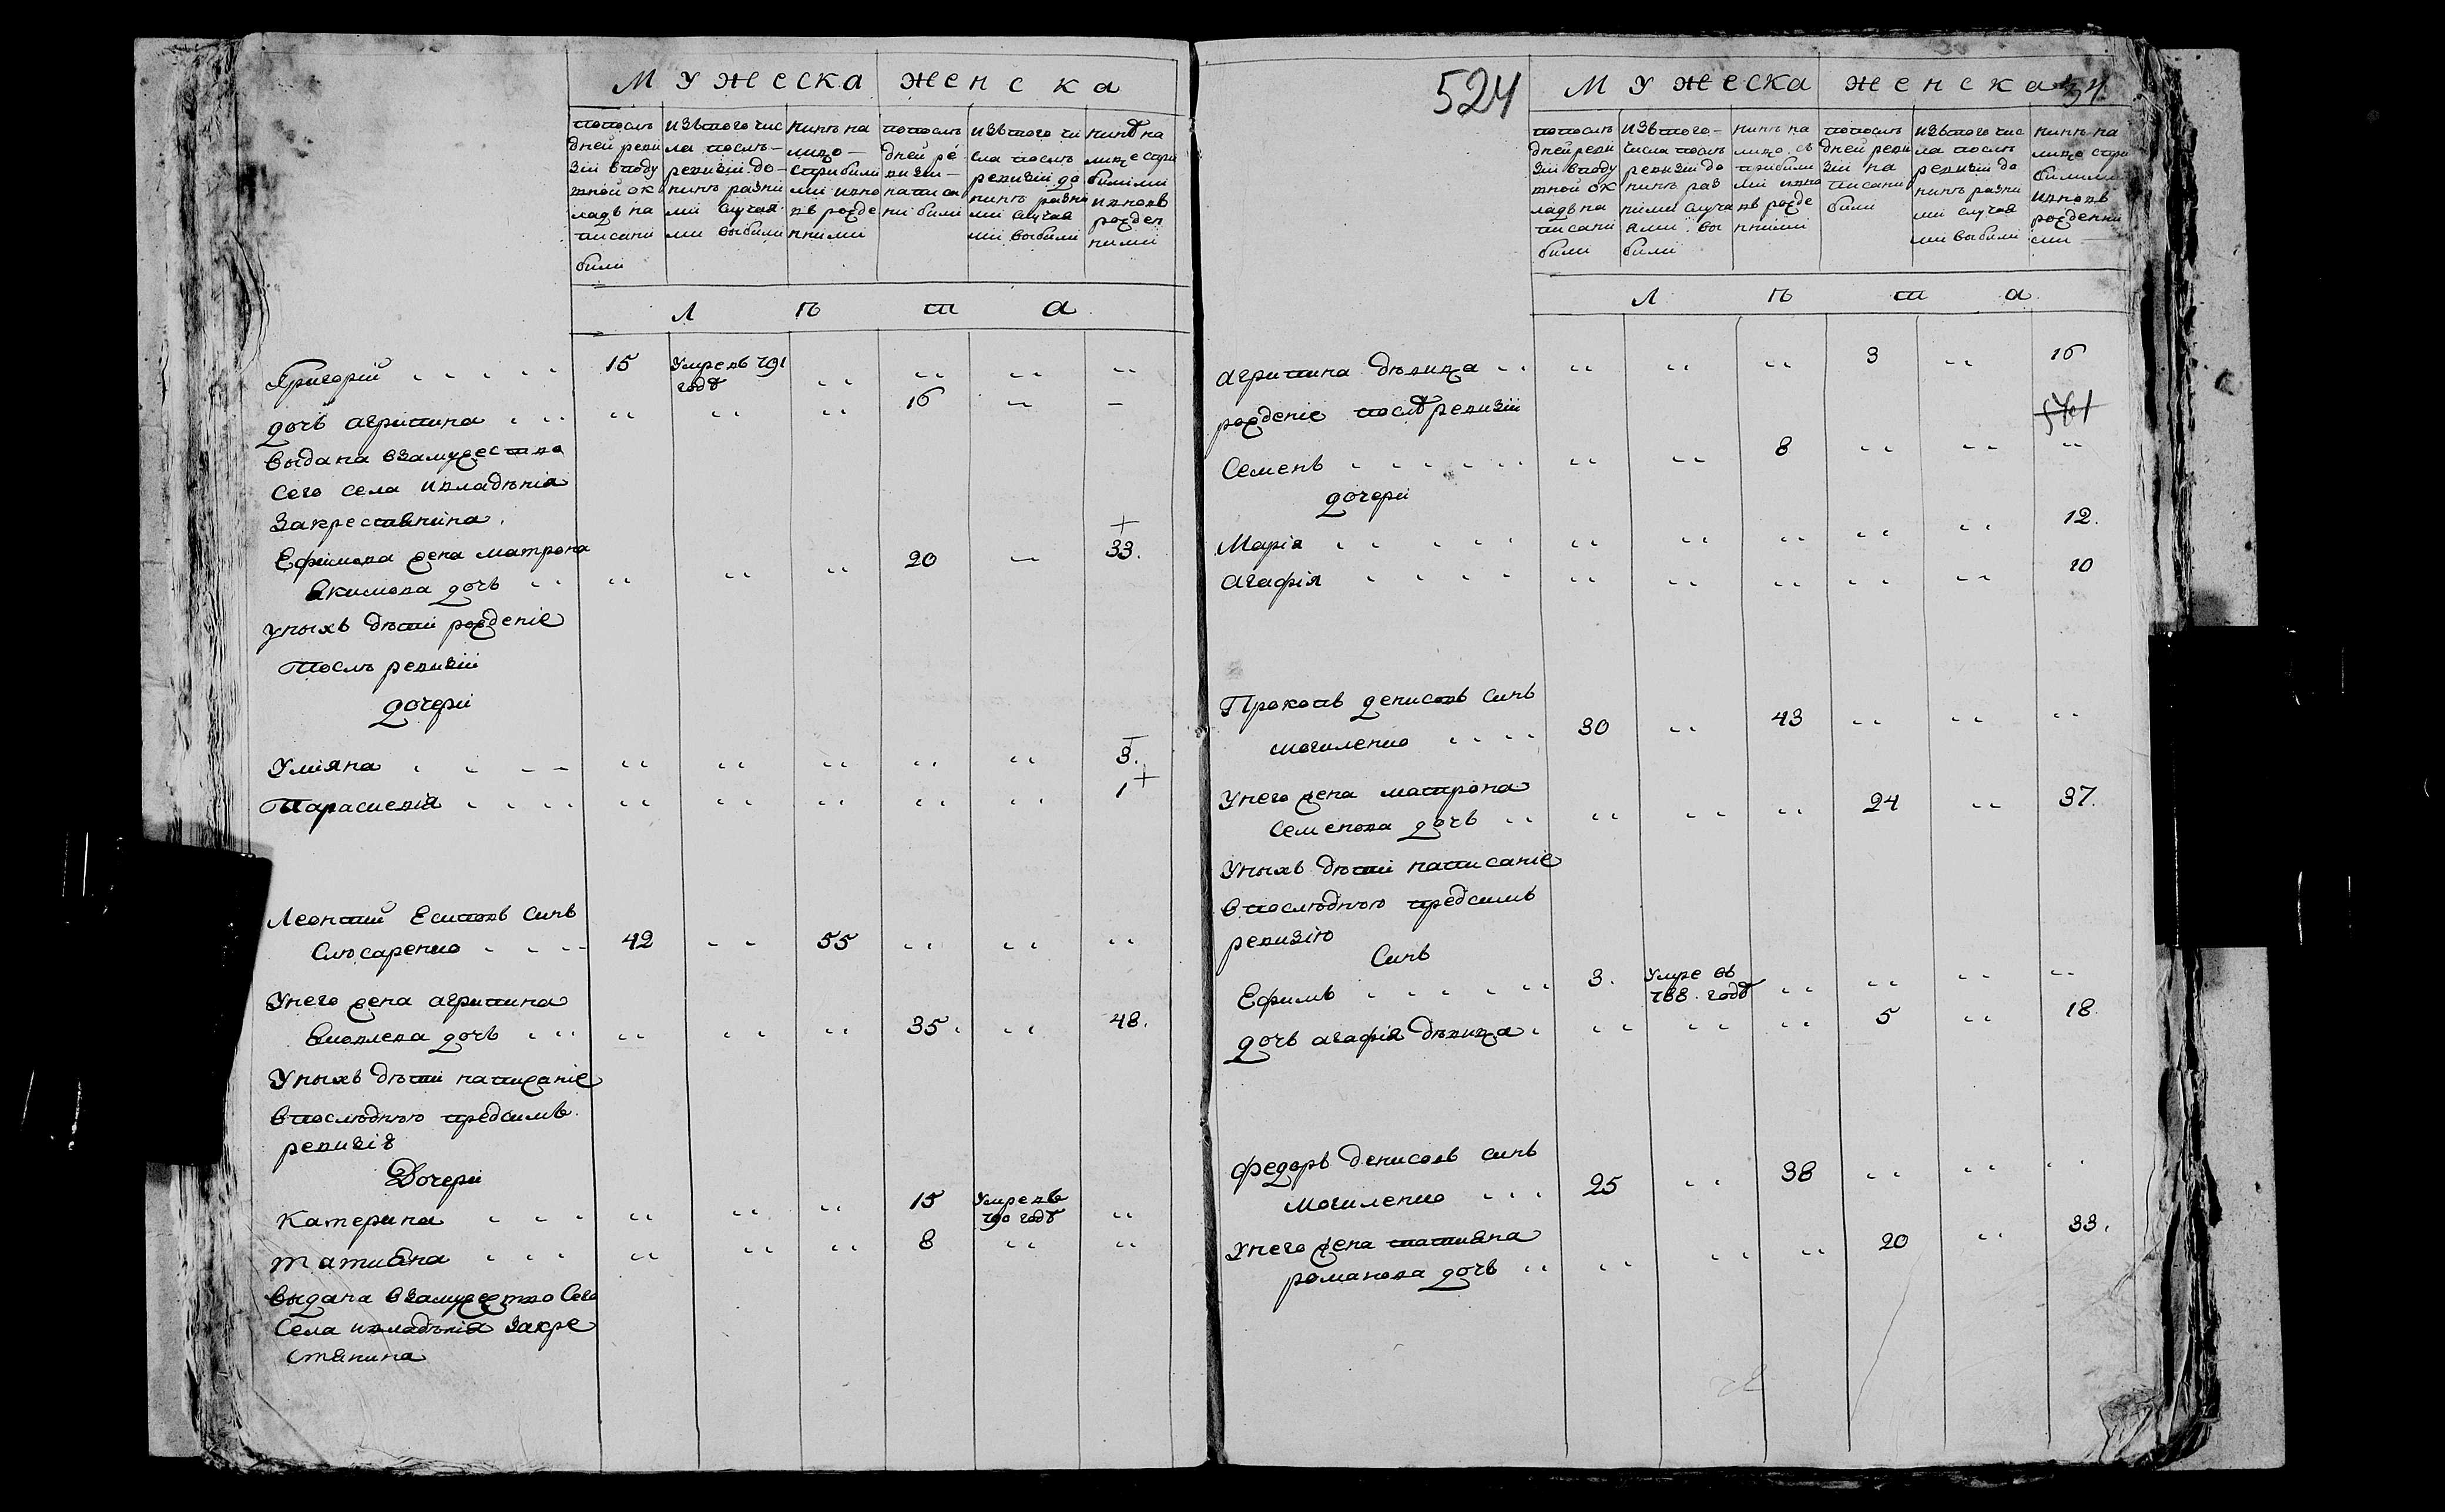 Мужеска женска
попослѣ дней ревизіи вподушной окладъ написани били
изътого числа послѣ ревизіи до нинѣ разними случаями выбили
нинѣ на лицо сприбилими ивновь рожденними
попослѣ дней ревизіи написани били
изътого числа послѣ ревизіи до нинѣ разними случаями выбили
нинѣ на лице сприбилими ивновь рожденними
Лѣта
Григорій 15 Умре въ 791 годѣ
дочь агрипина 16 — —
выдана взамужество
сего села ивладѣнія
закрестянина.
Ефимова жена матрона
Якимова дочь 20 — 33.
Унихъ дѣти рожденіе
послѣ ревизіи
дочери
Улияна 3.
Парасцевія 1
Леонтий Есиповъ синъ
Слюсаренко 42 55
Унего жена агрипина
Яковлева дочь 35. 48.
Унихъ дѣти написаніе
впослѣднюю предсимъ
ревизіѣ
Дочери
Катерина 15 Умре въ 790 годѣ
татияна 8
выдана взамужество сего
села ивладѣнія закре
стянина
524
Мужеска женска 34
попослѣ дней ревизіи вподушной окладъ написани били
изътого числа послѣ ревизіи до нинѣ разними случаями выбили
нинѣ на лицо съ прибилими ивновь рожденними
попослѣ дней ревизіи написани били
изътого числа послѣ ревизіи до нинѣ разними случаями выбили
нинѣ на лицо сприбилими ивновь рожденними
Лѣта
агрипина дѣвица 3 16
рожденіе послѣ ревизіи
Семенъ 8
дочери
Марія 12.
агафія 10
Прокопъ денисовъ синъ
могиленко 30 43
Унего жена матрона
Семенова дочь 24 37.
Унихъ дѣти написаніе
впослѣднюю предсимъ
ревизію
Синъ
Ефимъ 3. Умре въ 788. годѣ
дочь агафія дѣвица 5 18
федоръ денисовъ синъ
могиленко 25 38
Унего жена татияна
романова дочь 20 33.